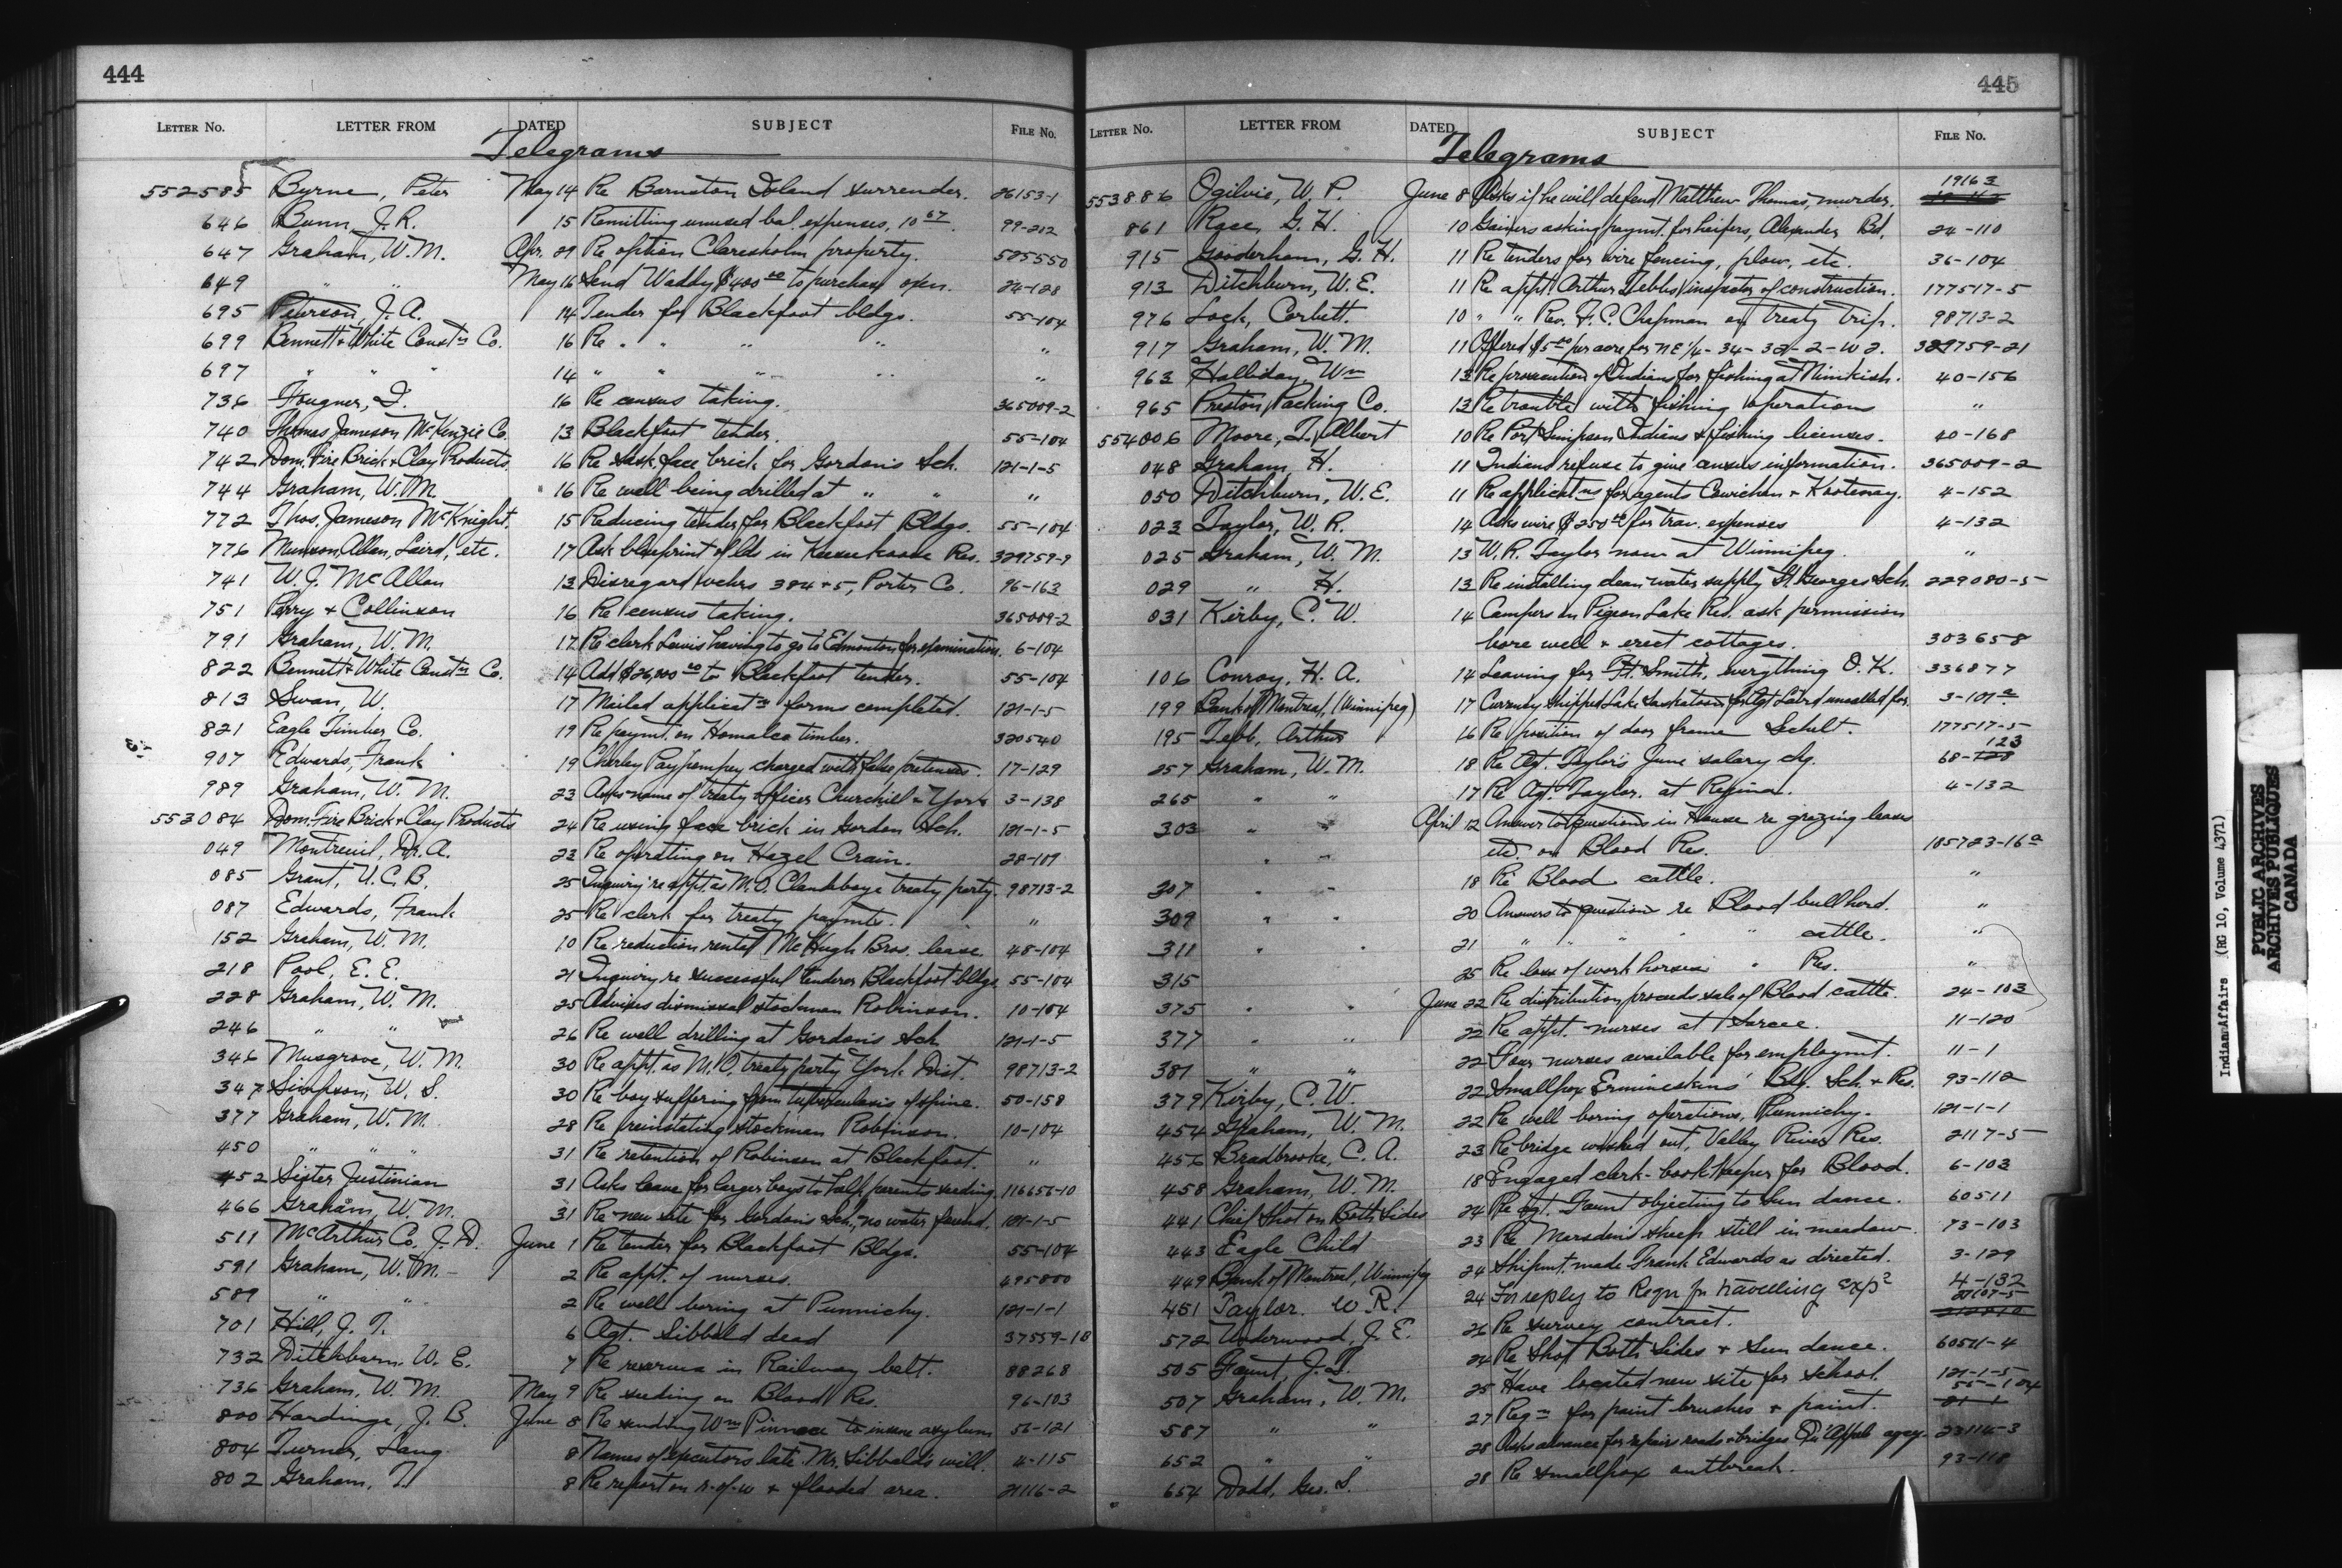 444
LETTER No. LETTER FROM DATED SUBJECT FILE No.
Telegrams
552585 Byrne, Peter May 14 Re Barnston Island surrender. 26153-1
646 Bunn, J. R. 15 Remitting unused bal. expenses, 10 67. 99-212
647 Graham, W. M. Apr. 29 Re option Claresholm property. 525550
649 " " May 16 Send Waddy $400 00 to purchase oxen. 24-128
695 Pearson, J. A. 14 Tender for Blackfoot bldgs. 55-104
699 Bennett & White Const'n Co. 16 Re " " " " "
697 " " " 14 " " " " "
736 Fougner, I. 16 Re census taking. 365009-2
740 Thomas Jameson McKenzie Co. 13 Blackfoot tender. 55-104
742 Dom. Fire Brick & Clay Products 16 Re Sask. face brick for Gordon's Sch. 121-1-5
744 Graham, W. M. 16 Re well being drilled at " " "
772 Thos. Jameson McKnight. 15 Reducing tender for Blackfoot Bldgs. 55-104
776 Munson, Allan, Laird, etc. 17 Ask blueprint of lds in Res. 329759-9
741 W. J. McAllan 13 Disregard vchrs 384 & 5, Porter Co. 96-163
751 Perry & Collinson 16 Re census taking. 365009-2
791 Graham, W. M. 17 Re clerk Lewis having to go to Edmonton for examination. 6-104
822 Bennett & White Const'n Co. 14 Add $26,000 00 to Blackfoot tender. 55-104
813 Swan, W. 17 Mailed applicat'n forms completed. 121-1-5
821 Eagle Timber Co. 19 Re paymt. on Homalco timber. 320540
907 Edwards, Frank 19 Charley Paypompey charged with false pretenses. 17-129
989 Graham, W. M. 23 Asks name of treaty officer Churchill & York 3-138
553084 Dom. Fire Brick & Clay Products 24 Re using face brick in Gordon Sch. 121-1-5
049 Montreuil, Dr. A. 23 Re operating on Hazel Crain. 28-109
085 Grant, U. C. B. 25 Inquiry re appt. as M. O. Clandeboye treaty party. 98713-2
087 Edwards, Frank 25 Re clerk for treaty paymts. "
152 Graham, W. M. 10 Re reduction rental McHugh Bros. lease. 48-104
218 Pool, E. E. 21 Inquiry re successful tenderer Blackfoot bldgs. 55-104
228 Graham, W. M. 25 Advises dismissal stockman Robinson. 10-104
246 " " 26 Re well drilling at Gordon's Sch. 121-1-5
346 Musgrove, W. M. 30 Re appt. as M. O. treaty party York Dist. 98713-2
347 Simpson, W. S. 30 Re boy suffering from tuberculosis of spine. 50-158
377 Graham, W. M. 28 Re reinstating stockman Robinson. 10-104
450 " " " 31 Re retention of Robinson at Blackfoot. "
452 Sister Justinian 31 Asks leave for larger boys to help parents seeding. 116656-10
466 Graham, W. M. 31 Re new site for Gordon's Sch., no water found. 121-1-5
511 McArthur Co. J. D. June 1 Re tender for Blackfoot Bldgs. 55-104
591 Graham, W. M. 2 Re appt. of nurses. 495800
589 " " 2 Re well boring at Punnichy. 121-1-1
701 Hill, J. T. 6 Agt. Sibbald dead 37559-10
732 Ditchburn, W. E. 7 Re reserves in Railway belt. 88268
736 Graham, W. M. May 9 Re seeding on Blood Res. 96-103
800 Hardinge, J. B. June 8 Re sending Wm Pinnace to insane asylum 56-121
804 Turner, Lang 8 Names of executors late Mr. Sibbald's will. 4-115
802 Graham, T. 8 Re report on r-of-w & flooded area. 21116-2
445
LETTER No. LETTER FROM DATED SUBJECT FILE No.
Telegrams
553886 Ogilvie, W. P. June 8 Asks if he will defend Matthew Thomas, murder. 19163
861 Race, G. H. 10 Gainers asking paymt. for heifers, Alexander Bd. 24-110
915 Gooderham, G. H. 11 Re tenders for wire fencing, plow, etc. 36-104
913 Ditchburn, W. E. 11 Re appt. Arthur Tebbs inspector of construction. 177517-5
976 Lock, Corbett. 10 " " Rev. F. C. Chapman on treaty trip. 98713-2
917 Graham, W. M. 11 Offered $5 00 per acre for NE 1/4-34-32-2-W 2. 329759-21
963 Halliday, Wm 13 Re prosecution of Indians for fishing at Nimkish. 40-156
965 Preston Packing Co. 13 Re trouble with fishing operations "
554006 Moore, T. Albert 10 Re Port Simpson Indians & fishing licenses. 40-168
048 Graham, H. 11 Indians refuse to give census information. 365009-2
050 Ditchburn, W. E. 11 Re applicat'ns for agents Cowichan & Kootenay. 4-152
023 Taylor, W. R. 14 Asks wire $250 00 for trav. expenses 4-132
025 Graham, W. M. 13 W. R. Taylor now at Winnipeg. "
029 " H. 13 Re installing clean water supply St. Georges Sch. 229080-5
031 Kirby, C. W. 14 Campers on Pigeon Lake Res. ask permission
bore well & erect cottages. 303658
106 Conroy, H. A. 14 Leaving for Ft. Smith, everything O. K. 336877
199 Bank of Montreal, (Winnipeg) 17 Currency shipped Lake Saskatoon for Agt Laird uncalled for. 3-101 a
195 Tebb, Arthur 16 Re position of door frame Sechelt. 177517-5
257 Graham, W. M. 18 Re Agt. Taylor's June salary chq. 68-123
265 " " 17 Re Agt. Taylor. at Regina. 4-132
303 " " April 12 Answer to questions in House re grazing leases
etc. on Blood Res. 185723-16 a
307 " " 18 Re Blood cattle. "
309 " " 20 Answers to question re Blood bull herd. "
311 " " 21 " " " " cattle. "
315 25 Re loss of work horses " Res. "
375 " " June 22 Re distribution proceeds sale of Blood cattle. 24-103
377 " " 22 Re appt. nurses at Sarcee. 11-120
381 " " 22 Four nurses available for employmt. 11-1
379 Kirby, C. W. 22 Smallpox Ermineskins' Bdg. Sch. & Res. 93-112
454 Graham, W. M. 22 Re well boring operations, Punnichy. 121-1-1
456 Bradbrooke, C. A. 23 Re bridge washed out, Valley River Res. 2117-5
458 Graham, W. M. 18 Engaged clerk-bookkeeper for Blood. 6-103
441 Chief Shot on Both Sides 24 Re Agt. Faunt objecting to sun dance. 60511
443 Eagle Child 23 Re Marsden's sheep still in meadow. 73-103
449 Bank of Montreal, Winnipeg 24 Shipmt. made Frank Edwards as directed. 3-129
451 Taylor. W. R. 24 In reply to Regn for travelling exps 4-132
572 Underwood, J. E. 26 Re survey contract. 21107-5
505 Faunt, J. T. 24 Re Shot Both Sides & Sun dance. 60511-4
507 Graham, W. M. 25 Have located new site for school. 121-1-5
587 " " 27 Reqn for paint brushes & paint. 55-104
652 " " 28 Asks advance for repairs roads & bridges Qu'Appelle agcy. 23114-3
654 Dodd, Geo. S. 28 Re smallpox outbreak. 93-118
Indian Affairs (RG 10, Volume 4371)
PUBLIC ARCHIVES
ARCHIVES PUBLIQUES
CANADA